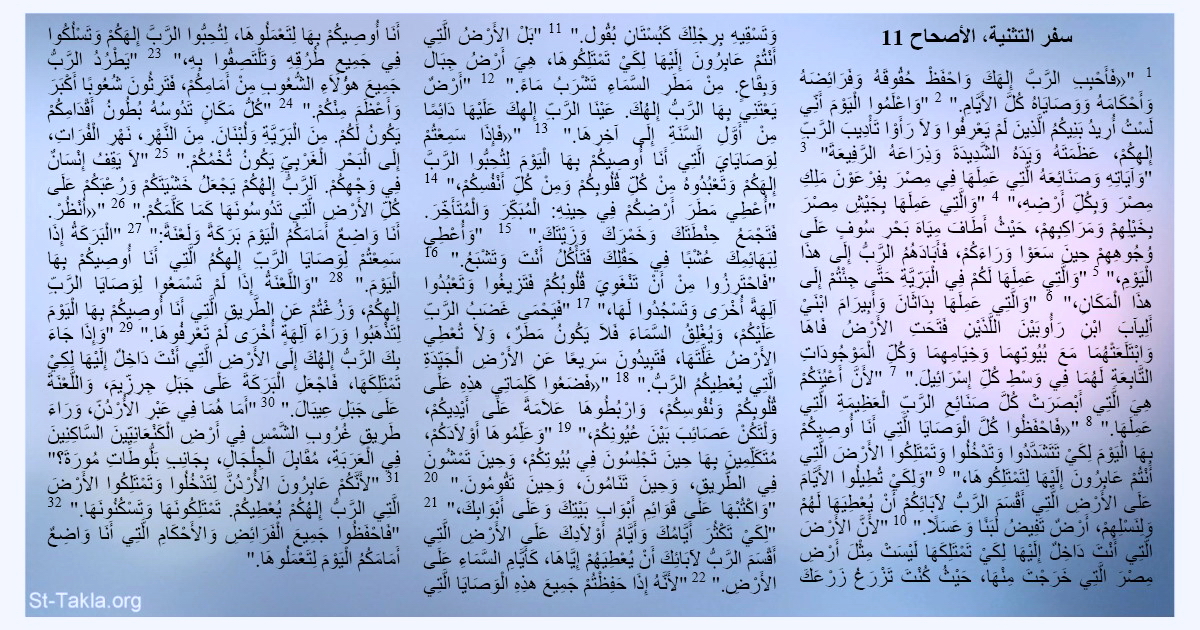 سفر التثنية، الأصحاح 11
1 "«فَأَحْبِبِ الرَّبَّ إِلهَكَ وَاحْفَظْ حُقُوقَهُ وَفَرَائِضَهُ
وَأَحْكَامَهُ وَوَصَايَاهُ كُلَّ الأَيَّامِ." 2 "وَاعْلَمُوا الْيَوْمَ أَنِّي
لَسْتُ أُرِيدُ بَنِيكُمُ الَّذِينَ لَمْ يَعْرِفُوا وَلاَ رَأَوْا تَأْدِيبَ الرَّبِّ
إِلهِكُمْ، عَظَمَتَهُ وَيَدَهُ الشَّدِيدَةَ وَذِرَاعَهُ الرَّفِيعَةَ" 3
"وَآيَاتِهِ وَصَنَائِعَهُ الَّتِي عَمِلَهَا فِي مِصْرَ بِفِرْعَوْنَ مَلِكِ
مِصْرَ وَبِكُلِّ أَرْضِهِ،" 4 "وَالَّتِي عَمِلَهَا بِجَيْشِ مِصْرَ
بِخَيْلِهِمْ وَمَرَاكِبِهِمْ، حَيْثُ أَطَافَ مِيَاهَ بَحْرِ سُوفٍ عَلَى
وُجُوهِهِمْ حِينَ سَعَوْا وَرَاءَكُمْ، فَأَبَادَهُمُ الرَّبُّ إِلَى هذَا
الْيَوْمِ،" 5 "وَالَّتِي عَمِلَهَا لَكُمْ فِي الْبَرِّيَّةِ حَتَّى جِئْتُمْ إِلَى
هذَا الْمَكَانِ،" 6 "وَالَّتِي عَمِلَهَا بِدَاثَانَ وَأَبِيرَامَ ابْنَيْ
أَلِيآبَ ابْنِ رَأُوبَيْنَ اللَّذَيْنِ فَتَحَتِ الأَرْضُ فَاهَا
وَابْتَلَعَتْهُمَا مَعَ بُيُوتِهِمَا وَخِيَامِهِمَا وَكُلِّ الْمَوْجُودَاتِ
التَّابِعَةِ لَهُمَا فِي وَسْطِ كُلِّ إِسْرَائِيلَ." 7 "لأَنَّ أَعْيُنَكُمْ
هِيَ الَّتِي أَبْصَرَتْ كُلَّ صَنَائِعِ الرَّبِّ الْعَظِيمَةِ الَّتِي
عَمِلَهَا." 8 "«فَاحْفَظُوا كُلَّ الْوَصَايَا الَّتِي أَنَا أُوصِيكُمْ
بِهَا الْيَوْمَ لِكَيْ تَتَشَدَّدُوا وَتَدْخُلُوا وَتَمْتَلِكُوا الأَرْضَ الَّتِي
أَنْتُمْ عَابِرُونَ إِلَيْهَا لِتَمْتَلِكُوهَا،" 9 "وَلِكَيْ تُطِيلُوا الأَيَّامَ
عَلَى الأَرْضِ الَّتِي أَقْسَمَ الرَّبُّ لآبَائِكُمْ أَنْ يُعْطِيَهَا لَهُمْ
وَلِنَسْلِهِمْ، أَرْضٌ تَفِيضُ لَبَنًا وَعَسَلًا." 10 "لأَنَّ الأَرْضَ
الَّتِي أَنْتَ دَاخِلٌ إِلَيْهَا لِكَيْ تَمْتَلِكَهَا لَيْسَتْ مِثْلَ أَرْضِ
مِصْرَ الَّتِي خَرَجْتَ مِنْهَا، حَيْثُ كُنْتَ تَزْرَعُ زَرْعَكَ
وَتَسْقِيهِ بِرِجْلِكَ كَبُسْتَانِ بُقُول." 11 "بَلْ الأَرْضُ الَّتِي
أَنْتُمْ عَابِرُونَ إِلَيْهَا لِكَيْ تَمْتَلِكُوهَا، هِيَ أَرْضُ جِبَال
وَبِقَاعٍ. مِنْ مَطَرِ السَّمَاءِ تَشْرَبُ مَاءً." 12 "أَرْضٌ
يَعْتَنِي بِهَا الرَّبُّ إِلهُكَ. عَيْنَا الرَّبِّ إِلهِكَ عَلَيْهَا دَائِمًا
مِنْ أَوَّلِ السَّنَةِ إِلَى آخِرِهَا." 13 "«فَإِذَا سَمِعْتُمْ
لِوَصَايَايَ الَّتِي أَنَا أُوصِيكُمْ بِهَا الْيَوْمَ لِتُحِبُّوا الرَّبَّ
إِلهَكُمْ وَتَعْبُدُوهُ مِنْ كُلِّ قُلُوبِكُمْ وَمِنْ كُلِّ أَنْفُسِكُمْ،" 14
"أُعْطِي مَطَرَ أَرْضِكُمْ فِي حِينِهِ: الْمُبَكِّرَ وَالْمُتَأَخِّرَ.
فَتَجْمَعُ حِنْطَتَكَ وَخَمْرَكَ وَزَيْتَكَ." 15 "وَأُعْطِي
لِبَهَائِمِكَ عُشْبًا فِي حَقْلِكَ فَتَأْكُلُ أَنْتَ وَتَشْبَعُ." 16
"فَاحْتَرِزُوا مِنْ أَنْ تَنْغَوِيَ قُلُوبُكُمْ فَتَزِيغُوا وَتَعْبُدُوا
آلِهَةً أُخْرَى وَتَسْجُدُوا لَهَا،" 17 "فَيَحْمَى غَضَبُ الرَّبِّ
عَلَيْكُمْ، وَيُغْلِقُ السَّمَاءَ فَلاَ يَكُونُ مَطَرٌ، وَلاَ تُعْطِي
الأَرْضُ غَلَّتَهَا، فَتَبِيدُونَ سَرِيعًا عَنِ الأَرْضِ الْجَيِّدَةِ
الَّتِي يُعْطِيكُمُ الرَّبُّ." 18 "«فَضَعُوا كَلِمَاتِي هذِهِ عَلَى
قُلُوبِكُمْ وَنُفُوسِكُمْ، وَارْبُطُوهَا عَلاَمَةً عَلَى أَيْدِيكُمْ،
وَلْتَكُنْ عَصَائِبَ بَيْنَ عُيُونِكُمْ،" 19 "وَعَلِّمُوهَا أَوْلاَدَكُمْ،
مُتَكَلِّمِينَ بِهَا حِينَ تَجْلِسُونَ فِي بُيُوتِكُمْ، وَحِينَ تَمْشُونَ
فِي الطَّرِيقِ، وَحِينَ تَنَامُونَ، وَحِينَ تَقُومُونَ." 20
"وَاكْتُبْهَا عَلَى قَوَائِمِ أَبْوَابِ بَيْتِكَ وَعَلَى أَبْوَابِكَ،" 21
"لِكَيْ تَكْثُرَ أَيَّامُكَ وَأَيَّامُ أَوْلاَدِكَ عَلَى الأَرْضِ الَّتِي
أَقْسَمَ الرَّبُّ لآبَائِكَ أَنْ يُعْطِيَهُمْ إِيَّاهَا، كَأَيَّامِ السَّمَاءِ عَلَى
الأَرْضِ." 22 "لأَنَّهُ إِذَا حَفِظْتُمْ جَمِيعَ هذِهِ الْوَصَايَا الَّتِي
أَنَا أُوصِيكُمْ بِهَا لِتَعْمَلُوهَا، لِتُحِبُّوا الرَّبَّ إِلهَكُمْ وَتَسْلُكُوا
فِي جَمِيعِ طُرُقِهِ وَتَلْتَصِقُوا بِهِ،" 23 "يَطْرُدُ الرَّبُّ
جَمِيعَ هؤُلاَءِ الشُّعُوبِ مِنْ أَمَامِكُمْ، فَتَرِثُونَ شُعُوبًا أَكْبَرَ
وَأَعْظَمَ مِنْكُمْ." 24 "كُلُّ مَكَانٍ تَدُوسُهُ بُطُونُ أَقْدَامِكُمْ
يَكُونُ لَكُمْ. مِنَ الْبَرِّيَّةِ وَلُبْنَانَ. مِنَ النَّهْرِ، نَهْرِ الْفُرَاتِ،
إِلَى الْبَحْرِ الْغَرْبِيِّ يَكُونُ تُخُمُكُمْ." 25 "لاَ يَقِفُ إِنْسَانٌ
فِي وَجْهِكُمْ. اَلرَّبُّ إِلهُكُمْ يَجْعَلُ خَشْيَتَكُمْ وَرُعْبَكُمْ عَلَى
كُلِّ الأَرْضِ الَّتِي تَدُوسُونَهَا كَمَا كَلَّمَكُمْ." 26 "«اُنْظُرْ.
أَنَا وَاضِعٌ أَمَامَكُمُ الْيَوْمَ بَرَكَةً وَلَعْنَةً:" 27 "الْبَرَكَةُ إِذَا
سَمِعْتُمْ لِوَصَايَا الرَّبِّ إِلهِكُمُ الَّتِي أَنَا أُوصِيكُمْ بِهَا
الْيَوْمَ." 28 "وَاللَّعْنَةُ إِذَا لَمْ تَسْمَعُوا لِوَصَايَا الرَّبِّ
إِلهِكُمْ، وَزُغْتُمْ عَنِ الطَّرِيقِ الَّتِي أَنَا أُوصِيكُمْ بِهَا الْيَوْمَ
لِتَذْهَبُوا وَرَاءَ آلِهَةٍ أُخْرَى لَمْ تَعْرِفُوهَا." 29 "وَإِذَا جَاءَ
بِكَ الرَّبُّ إِلهُكَ إِلَى الأَرْضِ الَّتِي أَنْتَ دَاخِلٌ إِلَيْهَا لِكَيْ
تَمْتَلِكَهَا، فَاجْعَلِ الْبَرَكَةَ عَلَى جَبَلِ جِرِزِّيمَ، وَاللَّعْنَةَ
عَلَى جَبَلِ عِيبَالَ." 30 "أَمَا هُمَا فِي عَبْرِ الأُرْدُنِّ، وَرَاءَ
طَرِيقِ غُرُوبِ الشَّمْسِ فِي أَرْضِ الْكَنْعَانِيِّينَ السَّاكِنِينَ
فِي الْعَرَبَةِ، مُقَابِلَ الْجِلْجَالِ، بِجَانِبِ بَلُّوطَاتِ مُورَةَ؟"
31 "لأَنَّكُمْ عَابِرُونَ الأُرْدُنَّ لِتَدْخُلُوا وَتَمْتَلِكُوا الأَرْضَ
الَّتِي الرَّبُّ إِلهُكُمْ يُعْطِيكُمْ. تَمْتَلِكُونَهَا وَتَسْكُنُونَهَا." 32
"فَاحْفَظُوا جَمِيعَ الْفَرَائِضِ وَالأَحْكَامِ الَّتِي أَنَا وَاضِعٌ
أَمَامَكُمُ الْيَوْمَ لِتَعْمَلُوهَا."
St-Takla.org